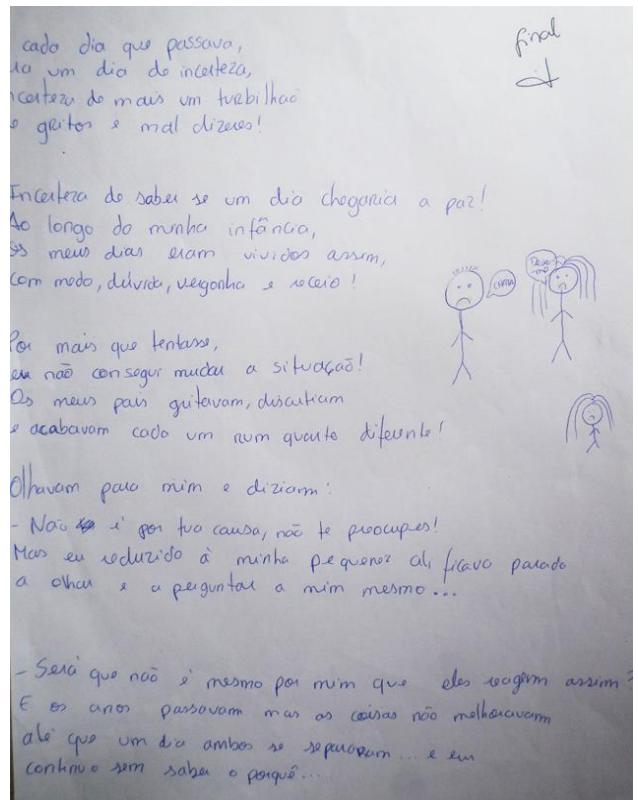 cada dia que passava,
um dia de incerteza,
incerteza de mais um turbilhaõ
gritos e mal dizeres!
Incerteza de saber se um dia chegaria a paz!
Ao longo da minha infância,
os meus dias eram vividos assim,
com medo, dúvida, vergonha e receio!
Por mais que tentasse,
eu não consegui mudar a situaçaõ!
Os meus pais gritavam, discutiam
e acabavam cada um num quarto diferente!
Olhavam para mim e diziam:
- Não é por tua causa, não te preocupes!
Mas eu reduzido à minha pequenez ali ficava parado
a olhar e a perguntar a mim mesmo...
- Será que não é mesmo por mim que eles reagem assim?
E os anos passavam mas as coisas não melhoravam
até que um dia ambos se separaram... e eu
continuo sem saber o porquê...
final